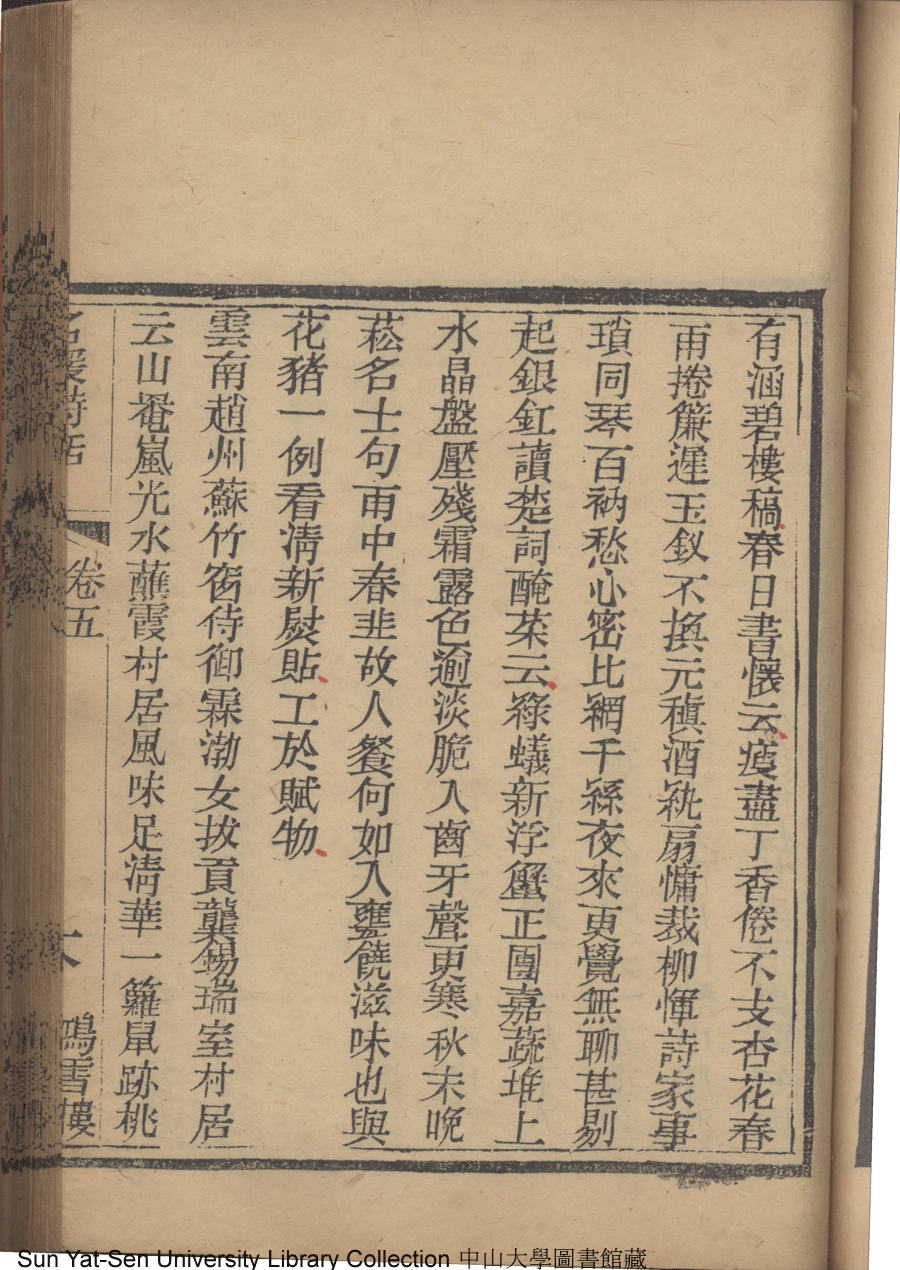 有涵碧樓稿春日書懷云瘦盡丁香倦不支杏花春
雨捲簾遲玉釵不換元稹酒紈扇慵裁柳惲詩家事
瑣同琴百衲愁心密比網千絲夜來更覺無聊甚剔
起銀釭讀楚詞醃菜云綠蟻新浮蟹正團嘉蔬堆上
水晶盤壓殘霜露色逾淡脆入齒牙聲更寒秋末晚
菘名士句雨中春韭故人餐何如入甕饒滋味也與
花豬一例看清新熨貼工於賦物
雲南趙州蘇竹窗侍御霖渤女拔貢龔錫瑞室村居
云山罨嵐光水蘸霞村居風味足清華一籬鼠跡桃
名媛詩話
卷五
鴻雪樓
Sun Yat-Sen University Library Collection 中山大學圖書館藏